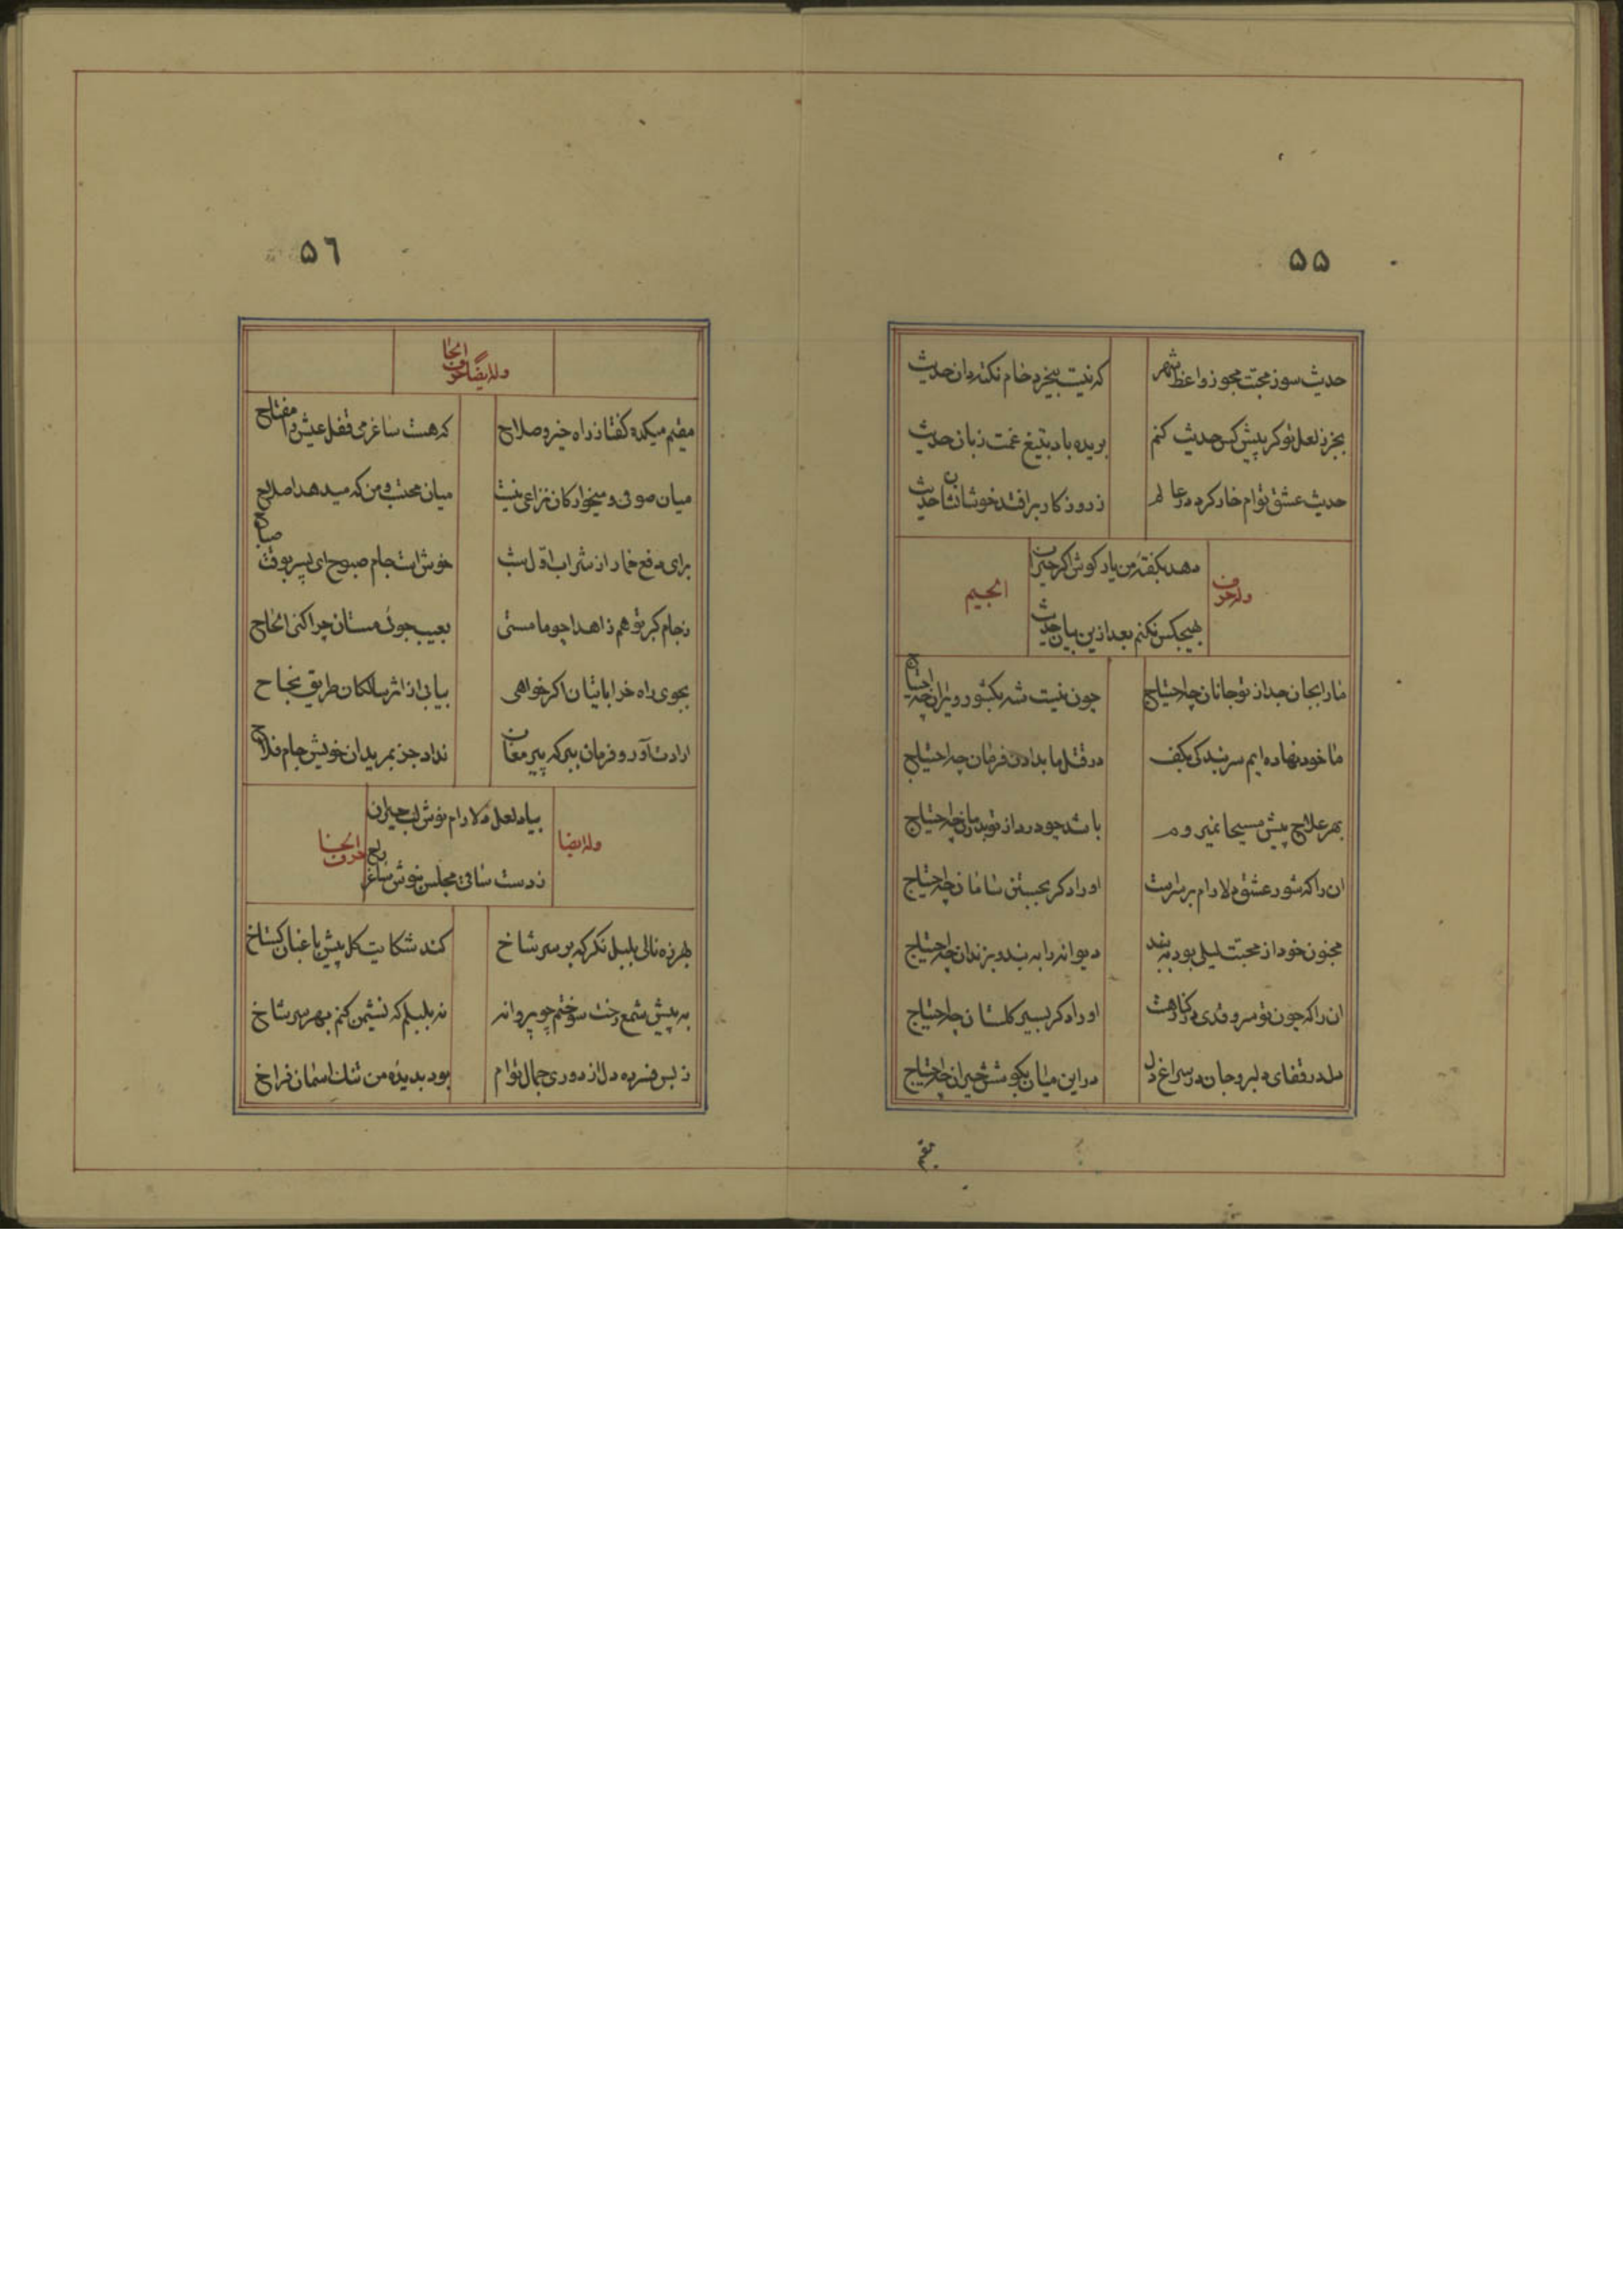 ۵۵
حدیث سوز محبت مجوز واعظ شهر
که نیست بیخرد خام نکته دان حدیث
بجز ز لعل تو کر پیش کس حدیث کنم
بریده باد بتیغ غمت زبان حدیث
حدیث عشق توام خار کرد در عالم
ز روزکار برافتد خوشا نشان حدیث
وله حرف
مدد بکفته من یار کوش اکر حیران
بهیچکس نکنم بعد ازین بیان حدیث
الجیم
ما را بجان جدا ز تو جانان چه احتیاج
چون نیست شه بکشور ویران چه احتیاج
ما خود نهاده ایم سر بندکی بکف
در قتل ما بدادن فرمان چه احتیاج
بهر علاج پیش مسیحا نمیروم
باشد چو درد از تو بدرمان چه احتیاج
ان را که شور عشق دلارام بر سرست
او را دکر بجستن سامان چه احتیاج
مجنون خود از محبت لیلی بود به بند
دیوانه را به بند و بزندان چه احتیاج
ان را که چون تو سرو قدی در کنار هست
او را دکر بسیر کلستان چه احتیاج
دل در قفای دلبر و جان در سراغ دل
در این میان بکوشش حیران چه احتیاج
مقیم
۵٦
وله ایضا حرف الحا
مقیم میکده کفتا ز راه خیر و صلاح
که هست ساغر می قفل عیش را مفتاح
میان صوفی و میخوارکان نزاعی نیست
میان محتسب و من که میدهد اصلاح
برای دفع خمار از شراب اول شب
خوش است جام صبوح ای پسر بوقت صباح
ز جام کبر تو هم زاهدا چو ما مستی
بعیب جوئی مستان چرا کنی الحاح
بجوی راه خراباتیان اکر خواهی
بیابی از اثر سالکان طریق نجاح
ارادت آور و فرمان ببر که پیر مغان
نداد جز بمریدان خویش جام فلاح
وله ایضا
بیاد لعل دلارام نوش لب حیران
ز دست ساقی مجلس بنوش ساغر راح
حرف الخا
بهرزه نالی بلبل نکر که بر سر شاخ
کند شکایت کل پیش باغبان کستاخ
به پیش شمع رخت سوختم چو پروانه
نه بلبلم که نشیمن کنم بهر سر شاخ
ز بس فسرده دل از دوری جمال توام
بود بدیده من تنک اسمان فراخ